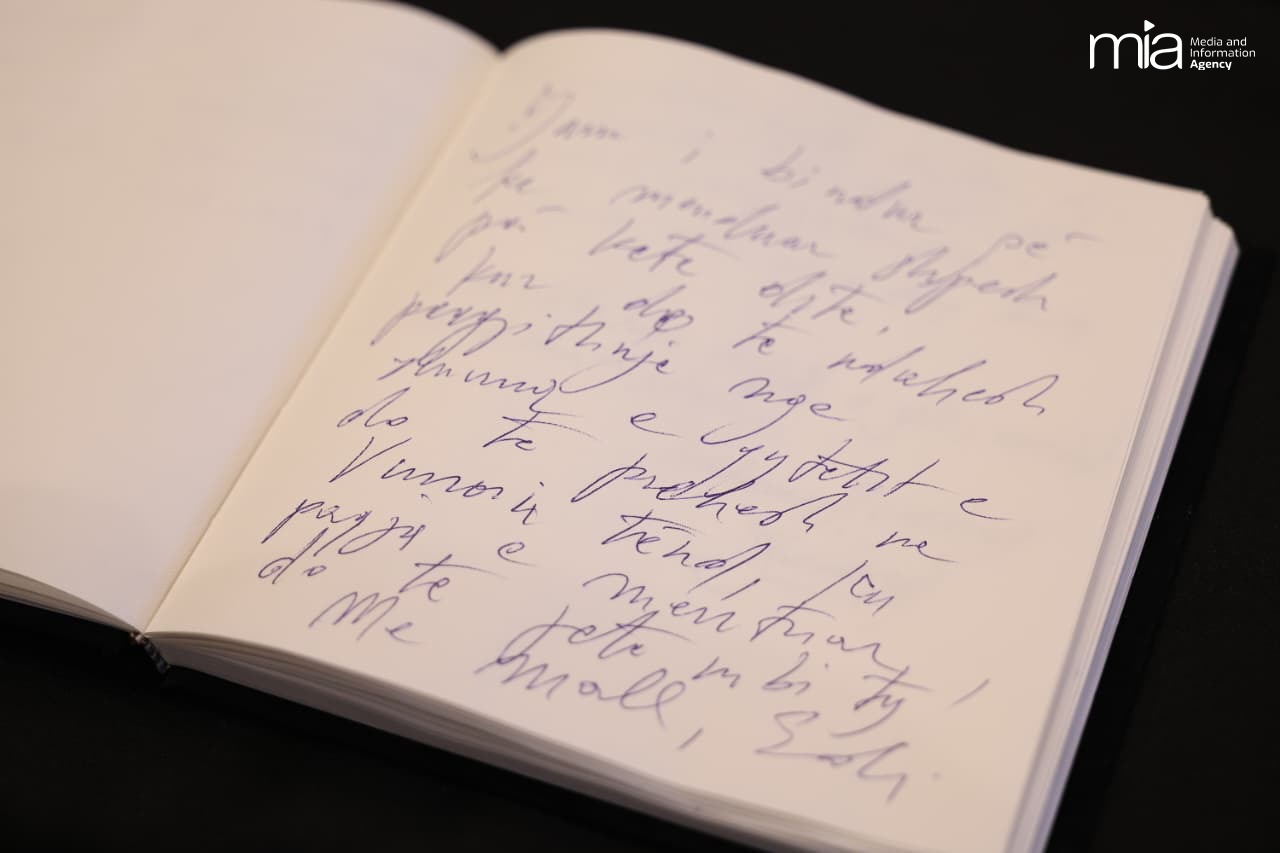 mia Media and
Information
Agency
Jam i bindur që
ke menduar shpesh
për këte ditë,
kur do të ndahesh
përgjithnjë nga
zhurma e qytetit e
do të prehesh në
Vunoin tënd, ku
paqja e merituar,
do të jetë mbi ty!
Me mall, Edi